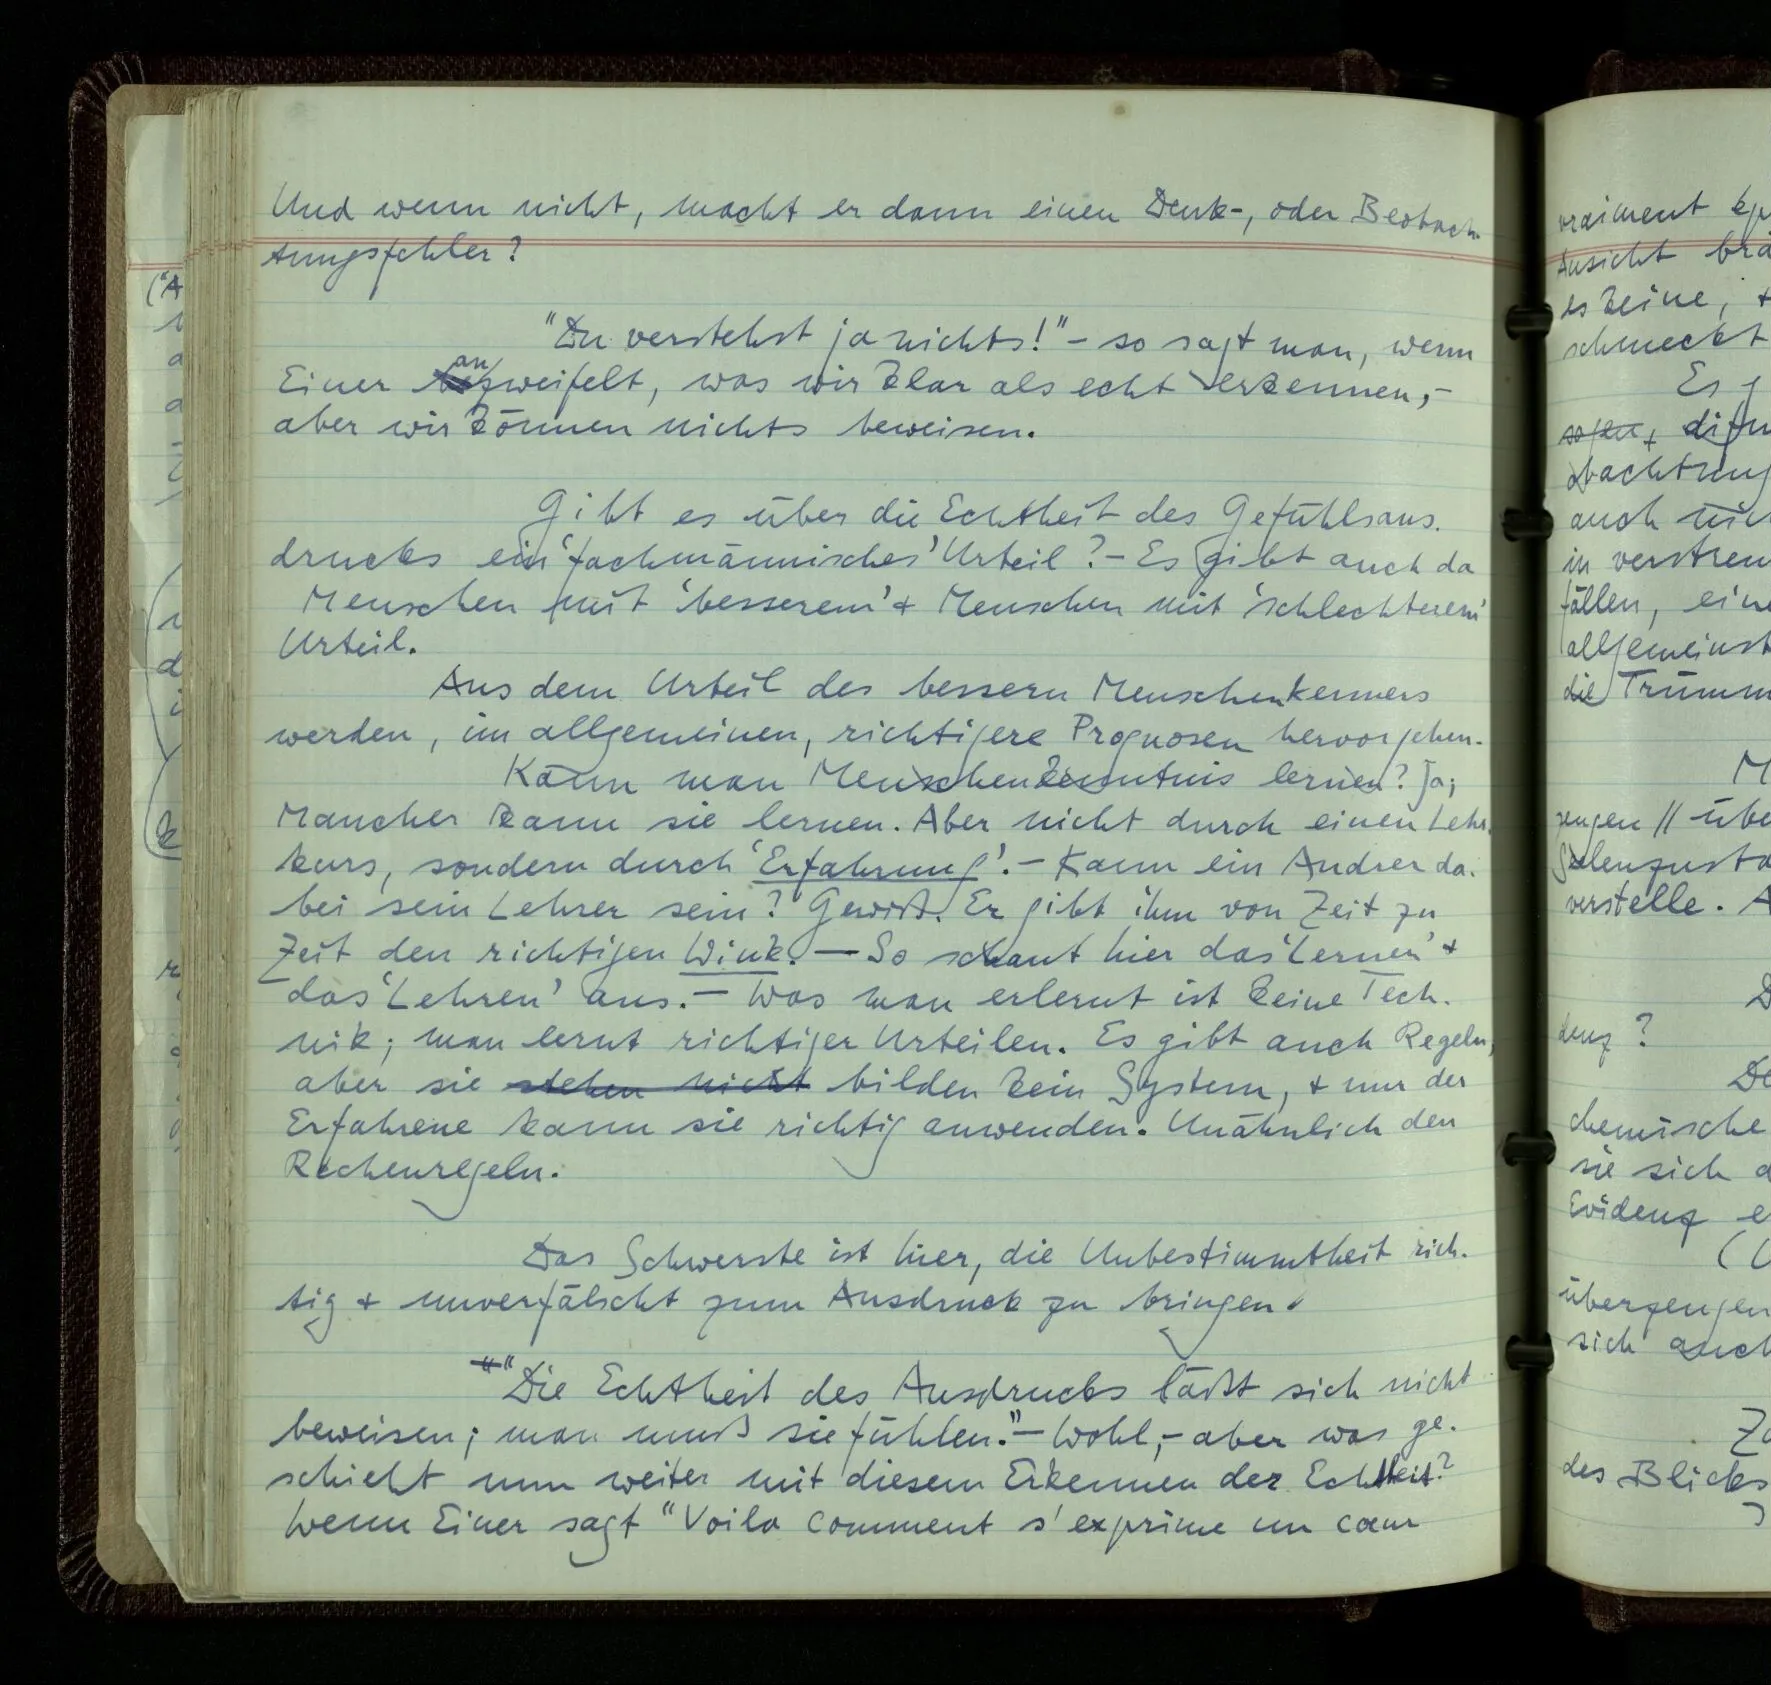 Und wenn nicht, macht er dann einen Denk-, oder Beobach-
tungsfehler?
"Du verstehst ja nichts!" – so sagt man, wenn
an
Einer bezweifelt, was wir klar als echt erkennen, –
aber wir können nichts beweisen.
Gibt es über die Echtheit des Gefühlsaus-
drucks ein 'fachmännisches' Urteil? – Es gibt auch da
Menschen mit 'besserem' & Menschen mit 'schlechterem'
Urteil.
Aus dem Urteil des bessern Menschenkenners
werden, im allgemeinen, richtigere Prognosen hervorgehen.
Kann man Menschenkenntnis lernen? Ja;
Mancher kann sie lernen. Aber nicht durch einen Lehr-
kurs, sondern durch 'Erfahrung'. – Kann ein Andrer da-
bei sein Lehrer sein? Gewiß. Er gibt ihm von Zeit zu
Zeit den richtigen Wink. – So schaut hier das 'Lernen' &
das 'Lehren' aus. – Was man erlernt ist keine Tech-
nik; man lernt richtiger Urteilen. Es gibt auch Regeln,
aber sie stehen nicht bilden kein System, & nur der
Erfahrene kann sie richtig anwenden. Unähnlich den
Rechenregeln.
Das Schwerste ist hier, die Unbestimmtheit rich-
tig & unverfälscht zum Ausdruck zu bringen.
"Die Echtheit des Ausdrucks läßt sich nicht
beweisen; man muß sie fühlen." – Wohl, – aber was ge-
schieht nun weiter mit diesem Erkennen der Echtheit?
Wenn Einer sagt "Voila comment s'exprime un cœur
vraiment
Ansicht
es keine, &
schmeckt
Es g
sagen,
obachtung
auch
in verstreu
fällen, eine
allgemeinst
die Trümm
M
zeugen // übe
Seelenzusta
verstelle. A
D
denz?
De
chemische
sie sich d
Evidenz e
(U
überzeugen
sich auch
Zu
des Blicks